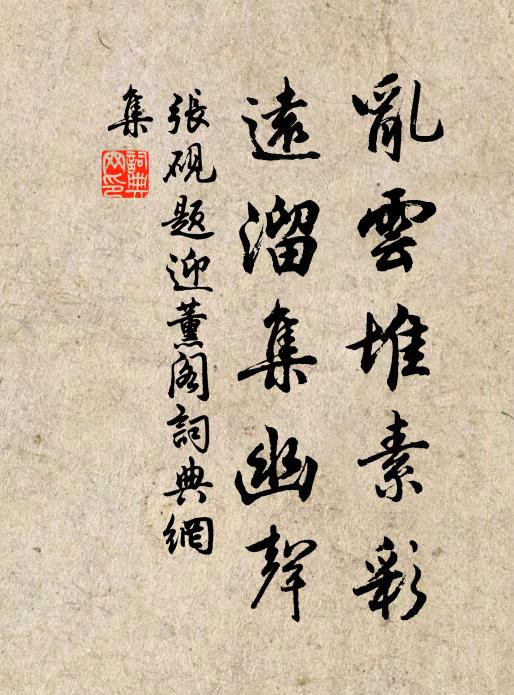 亂雲堆素彩
遠溜集幽聲
張硯題迎薰閣詞典網
集
詞典
网印